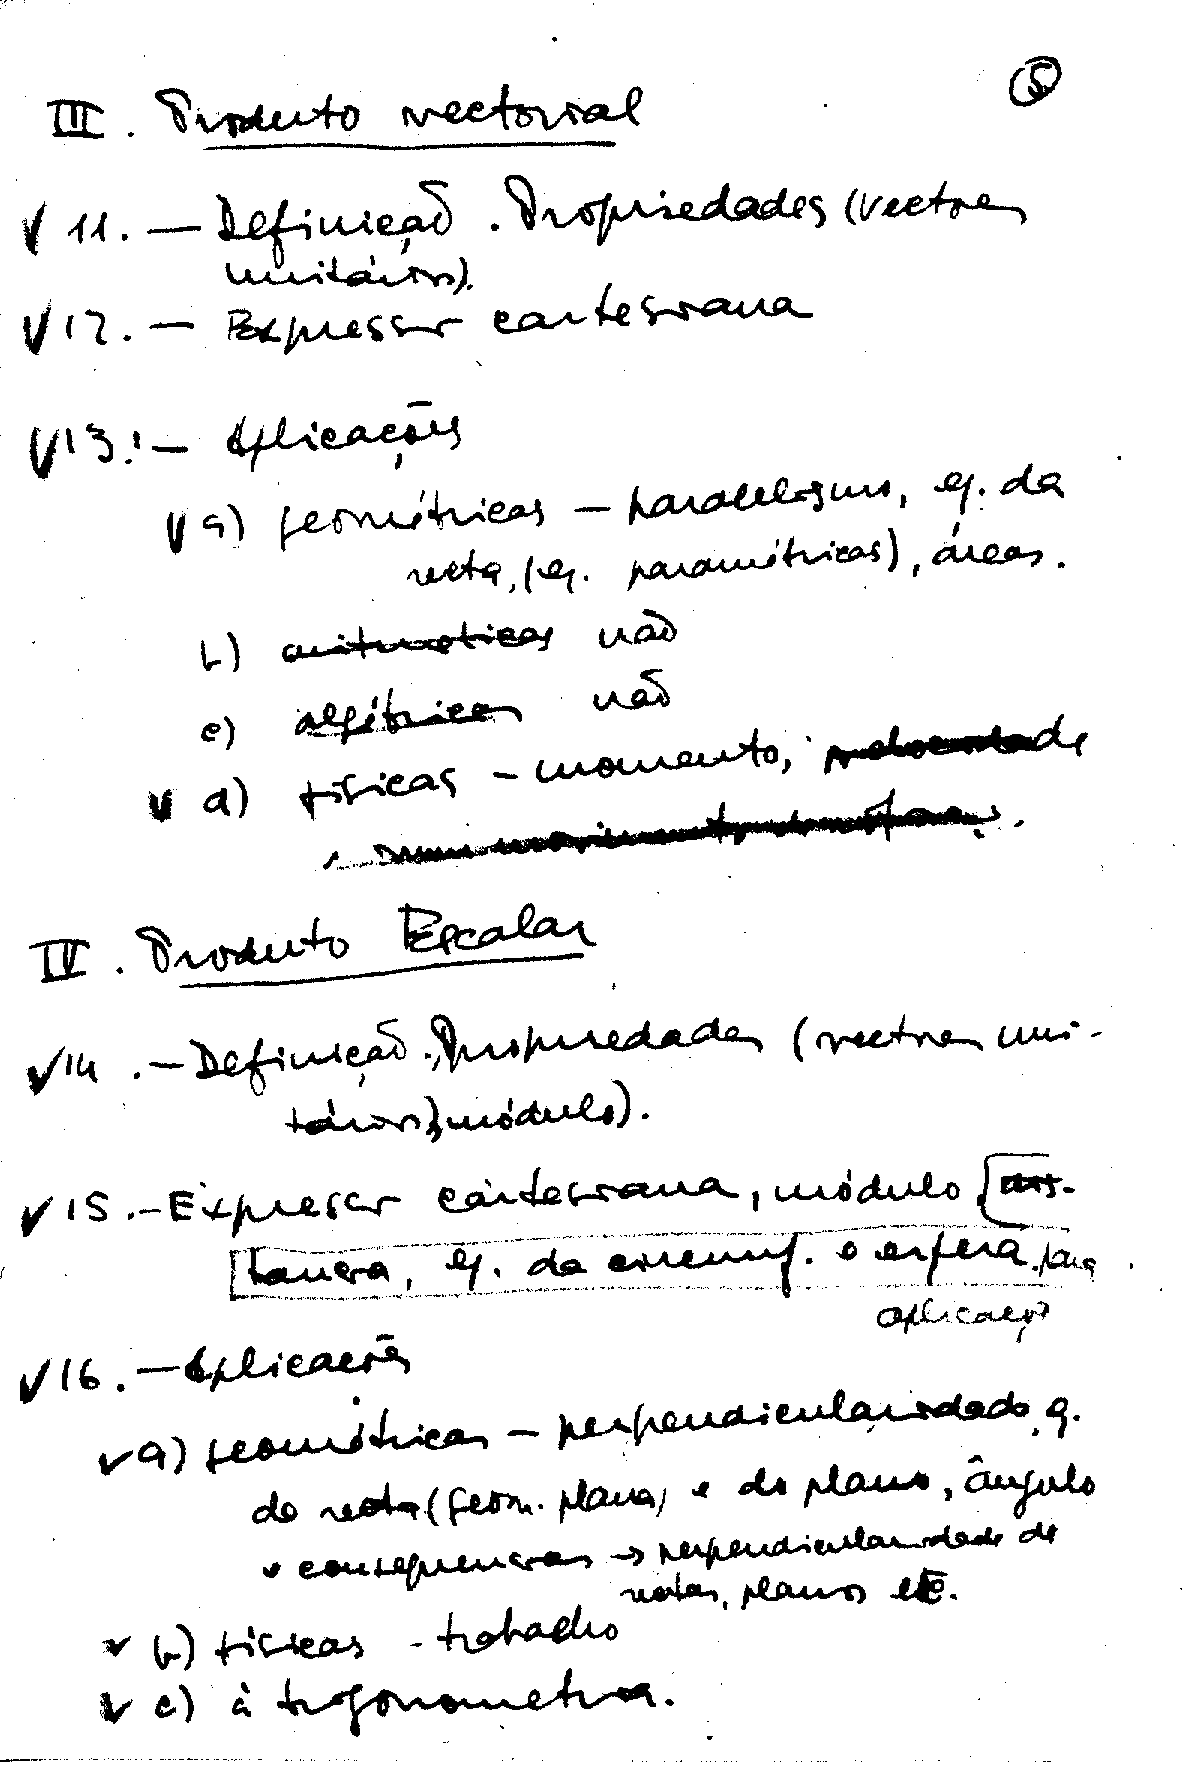 5
III. Produto vectorial
V 11. — Definição. Propriedades (vectores
unitários).
V 12. — Expressão cartesiana
V 13. — Aplicações
V a) geométricas — paralelismo, eq. da
recta, (eq. paramétricas), áreas.
b) aritméticas não
c) algébricas não
V d) físicas — momento, velocidade
num movimento
IV. Produto Escalar
V 14. — Definição. Propriedades (vectores uni-
tários, módulo).
V 15. — Expressão cartesiana, módulo [dis-
tancia, eq. da circunf. e esfera. para
aplicação
V 16. — Aplicações
V a) geométricas — perpendicularidade, eq.
da recta (geom. plana) e do plano, ângulo
v consequencias → perpendicularidade de
rectas, planos etc.
V b) físicas - trabalho
V c) à trigonometria.